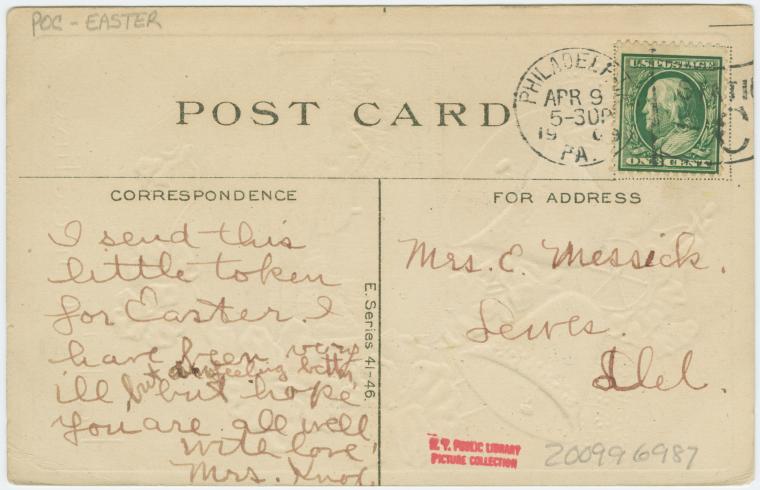 POC - EASTER
POST CARD
PHILADELP
APR 9
5-30P
19
PA.
U.S. POSTAGE
ONE CENT
CORRESPONDENCE
FOR ADDRESS
I send this
little token
for Easter. I
have been very
but am feeling better
ill but hope
you are all well
with love
Mrs. Knox
E. Series 41-46.
Mrs. E. Messick.
Lewes.
Del.
N.Y. PUBLIC LIBRARY
PICTURE COLLECTION
200996987